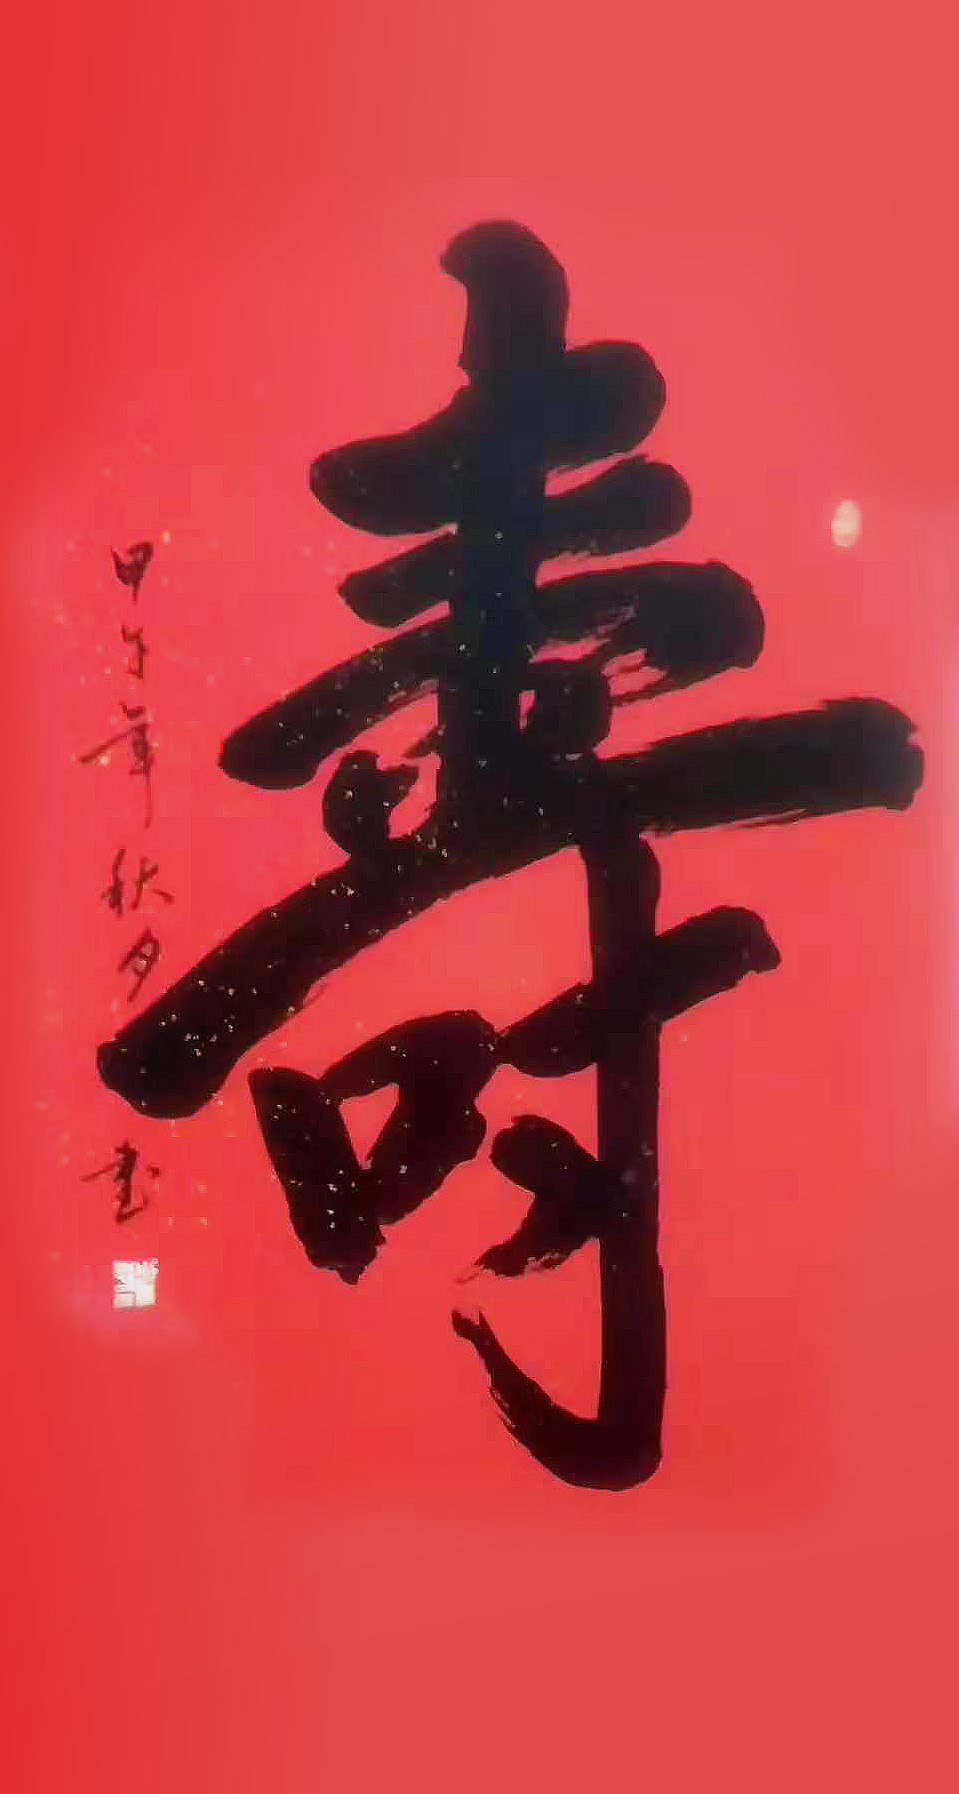 壽
甲午年秋月
書